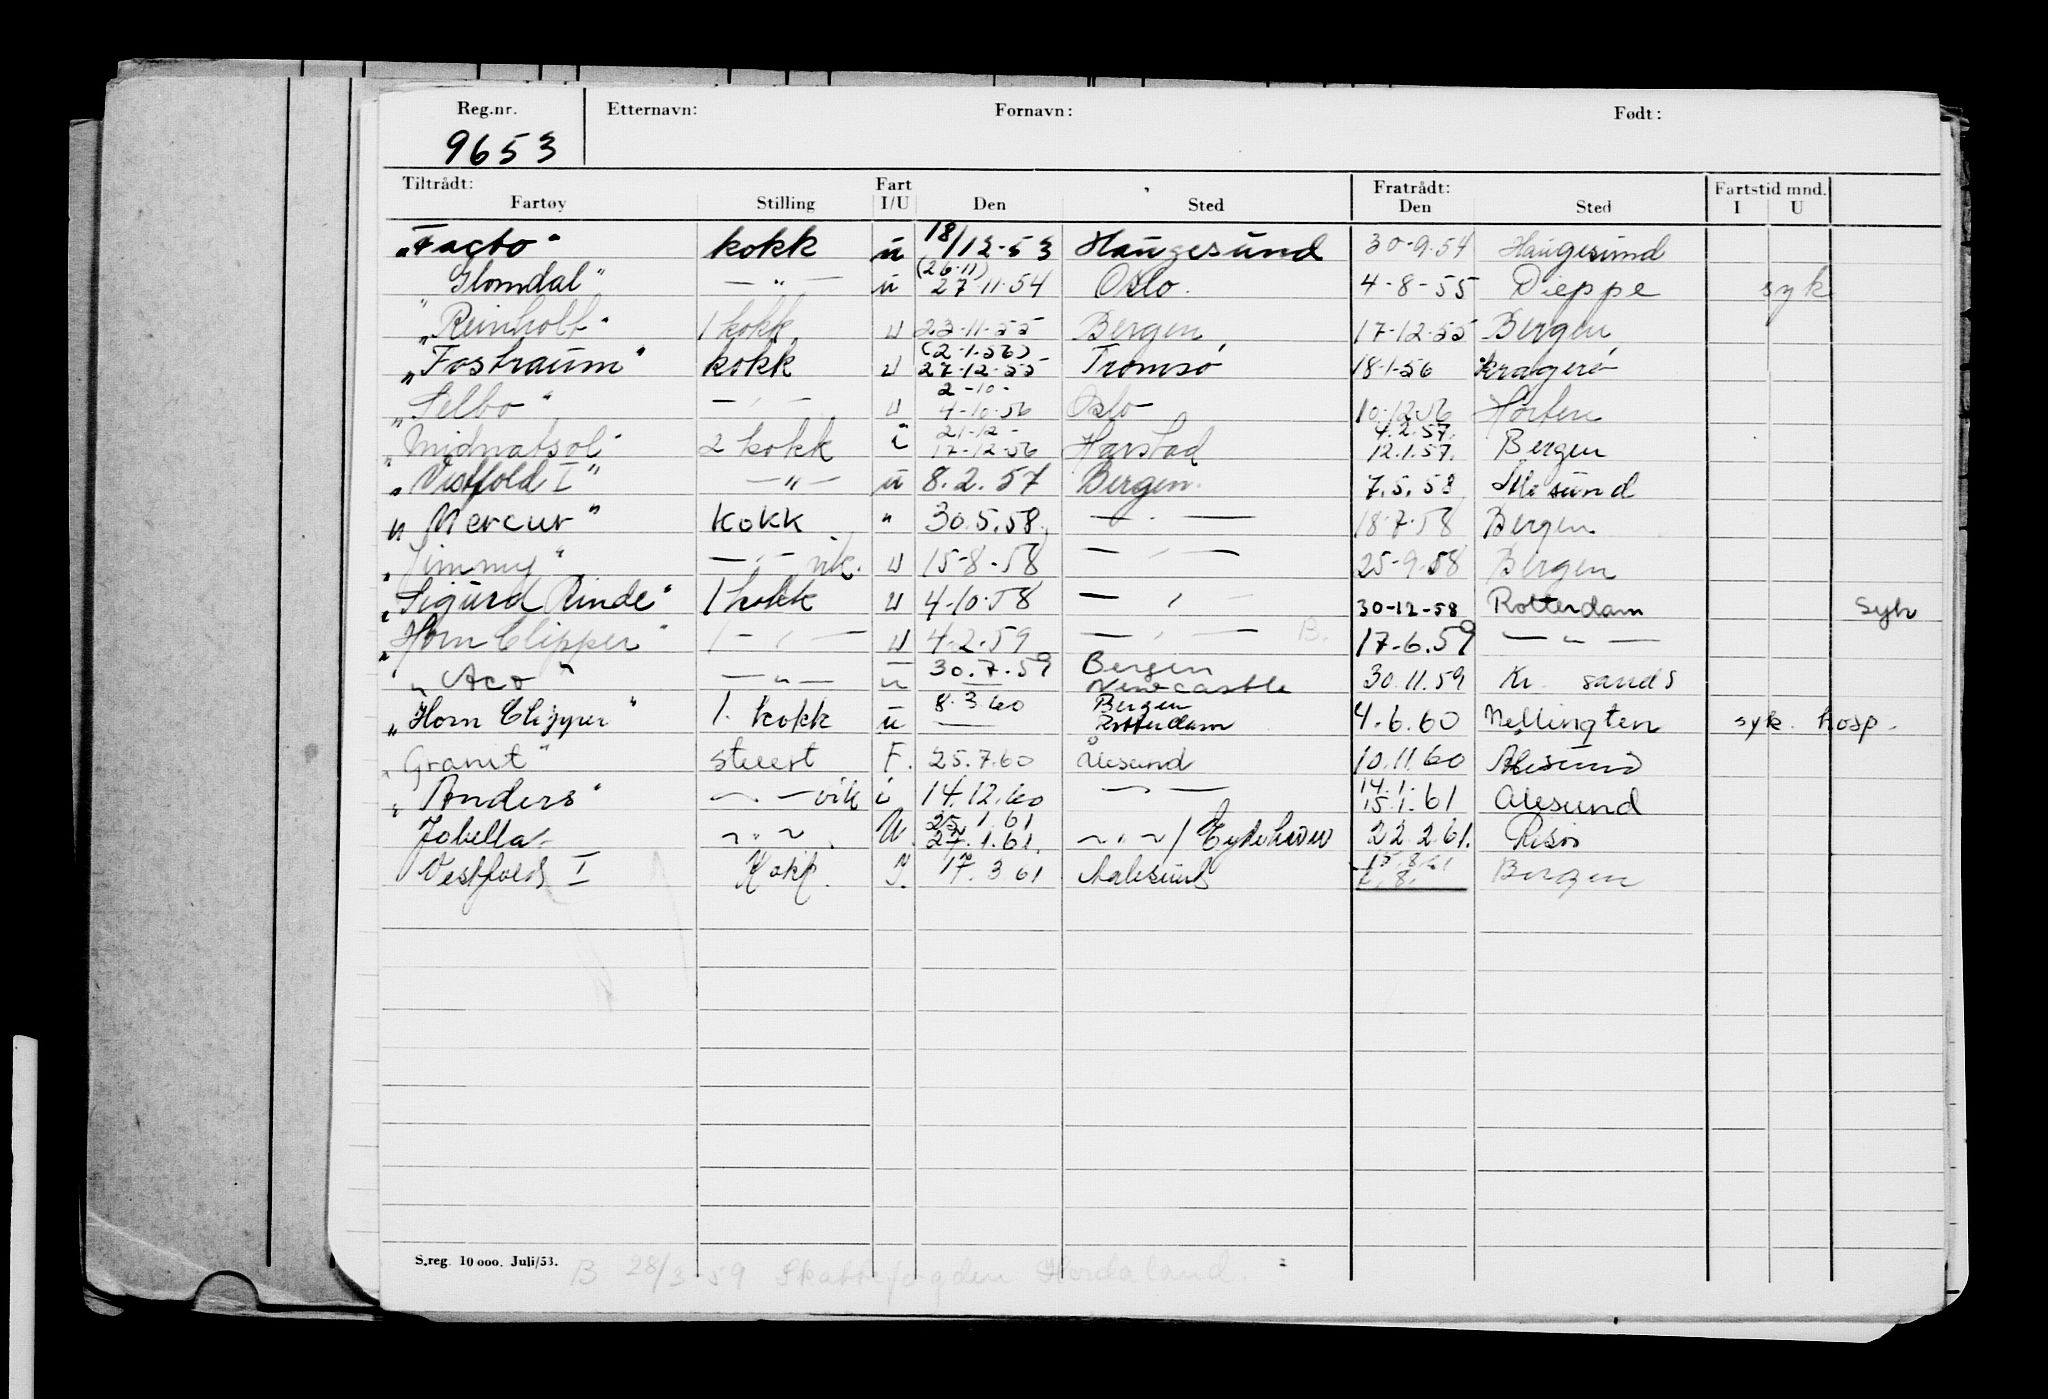 Reg.nr. Etternavn: Fornavn: Født:
9653
Tiltrådt: Fart Fratrådt: Fartstid mnd.
Fartøy Stilling I/U Den Sted Den Sted I U
„Facto“ kokk u 18/12-53 Haugesund 30-9-54 Haugesund
(26-11)
Glomdal“ —„— u 27-11-54 Oslo. 4-8-55 Dieppe syk
„Reinholt“ 1 kokk u 23-11-55 Bergen 17-12-55 Bergen
(2-1-56)
„Fostraum“ kokk u 27-12-55 Tromsø 18-1-56 Kragerø
2-10-
„Selbo“ —„— u 4-10-56 Oslo 10-12-56 Horten
21-12- 4.2.57.
„Midnatsol“ 2 kokk i 17-12-56 Harstad 12.1.57. Bergen
„Vestfold I“ —„— u 8.2.57 Bergen. 7.5.58 Ålesund
„Mercur“ Kokk „ 30.5.58. —„— 18-7-58 Bergen
„Jimmy“ —„— vik. u 15-8-58 —„— 25-9-58 Bergen
„Sigurd Rinde“ 1 kokk u 4-10-58 —„— 30-12-58 Rotterdam syk
„Horn Clipper“ 1 —„— u 4-2-59 —„— B. 17-6.59 —„—
„Aco“ —„— u 30.7.59 Bergen Newcastle 30.11.59 Kr. sand S
„Horn Clipper“ 1. kokk u 8.3.60 Bergen Rotterdam 4.6.60 Wellington syk. hosp.
„Granit“ stuert F. 25.7.60 Ålesund 10.11.60 Ålesund
14.1.
„Anders“ —„— vik i 14.12.60 —„— 15.1.61 Ålesund
25.1.61
Jobella ~„~ U. 27.1.61. ~„~ / Eydehavn 22.2.61. Risør
15.8.61
Vestfold I Kokk. I. 17.3.61 Aalesund 8. Bergen
S.reg. 10 000. Juli/53. B 28/3-59 Skattefogden Hordaland.